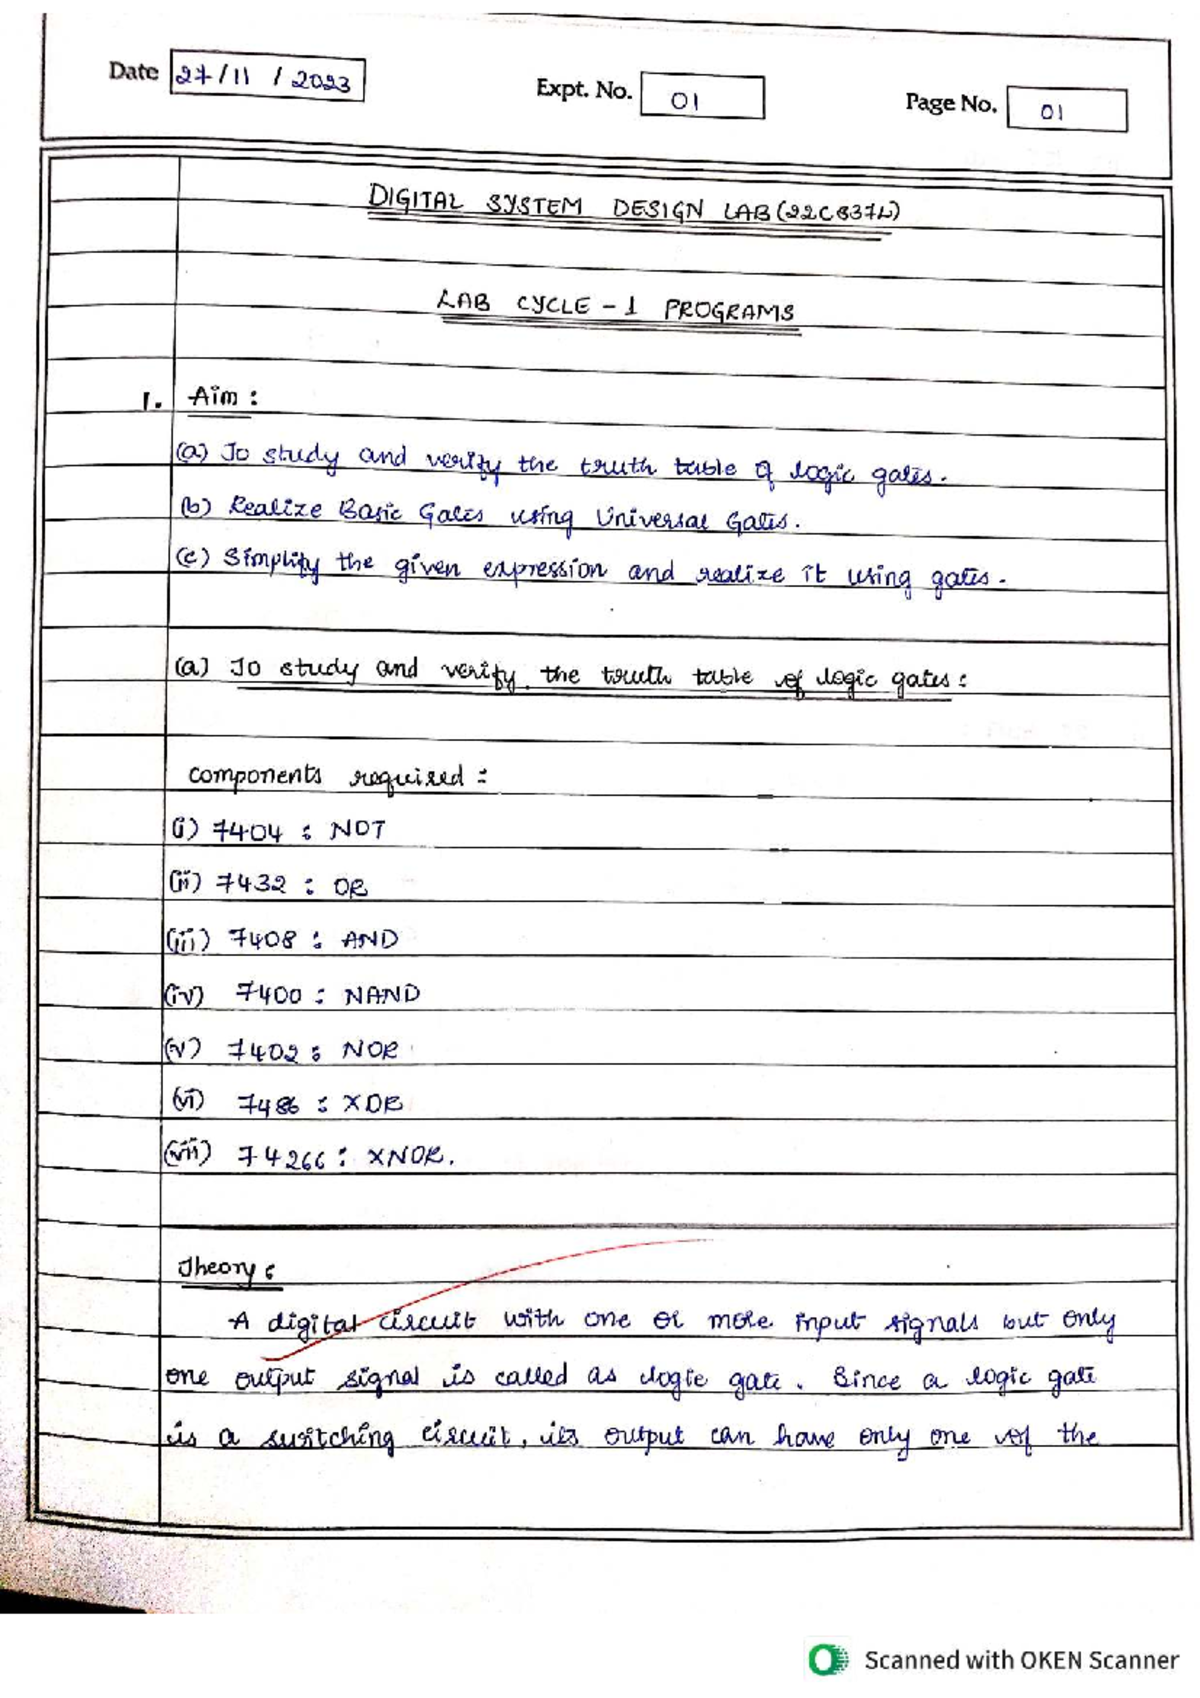 Date 27/11/2023 Expt. No. 01 Page No. 01
DIGITAL SYSTEM DESIGN LAB (22CB37L)
LAB CYCLE - 1 PROGRAMS
1. Aim :
(a) To study and verify the truth table of logic gates.
(b) Realize Basic Gates using Universal Gates.
(c) Simplify the given expression and realize it using gates.
(a) To study and verify the truth table of logic gates :
components required :
(i) 7404 : NOT
(ii) 7432 : OR
(iii) 7408 : AND
(iv) 7400 : NAND
(v) 7402 : NOR
(vi) 7486 : XOR
(vii) 74266 : XNOR.
Theory :
A digital circuit with one or more input signals but only
one output signal is called as logic gate. Since a logic gate
is a switching circuit, its output can have only one of the
Scanned with OKEN Scanner